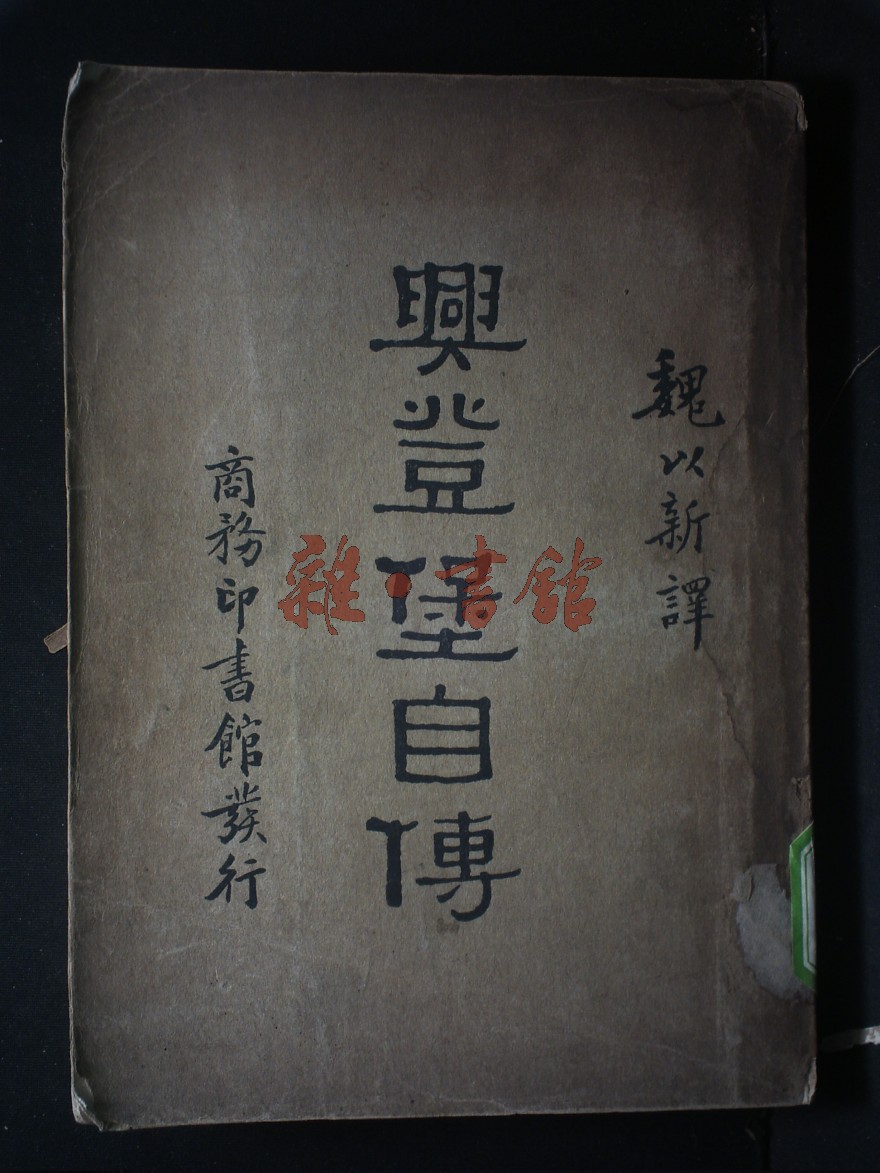 魏以新譯
興登堡自傳
商務印書館發行
雜·書館